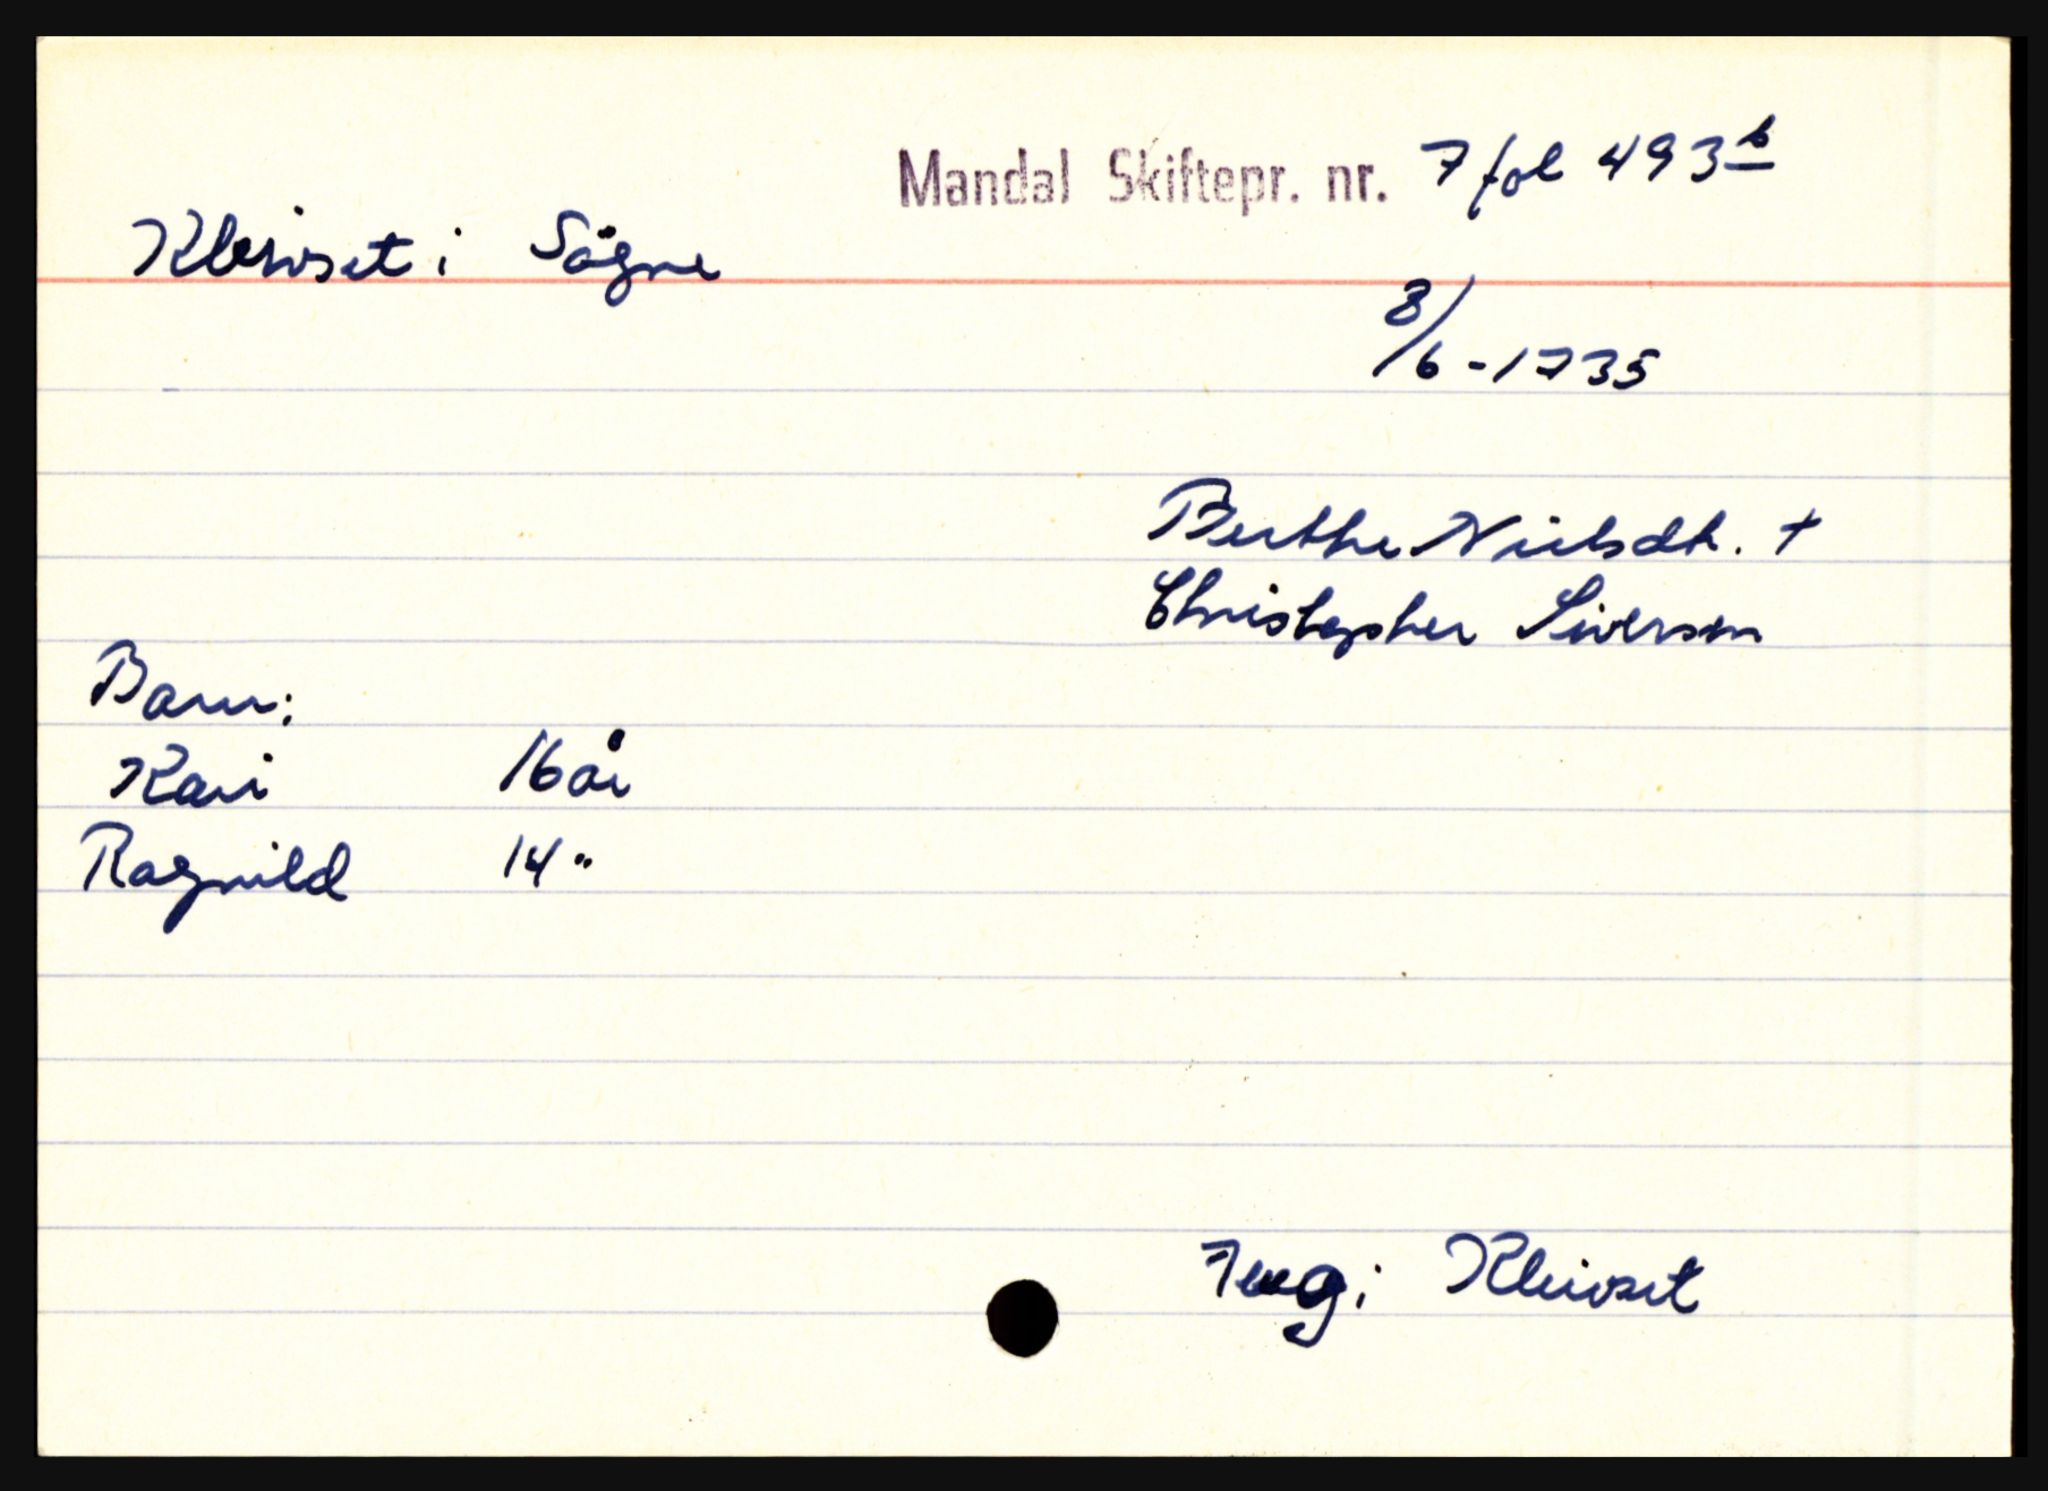 Mandal Skiftepr. nr. 7 fol 493 b
Kleivset i Sögne
8/6 - 1735
Berthe Nielsdtr. +
Christopher Siversen
Barn:
Kari 16 år
Ragnild 14 "
Kleivset